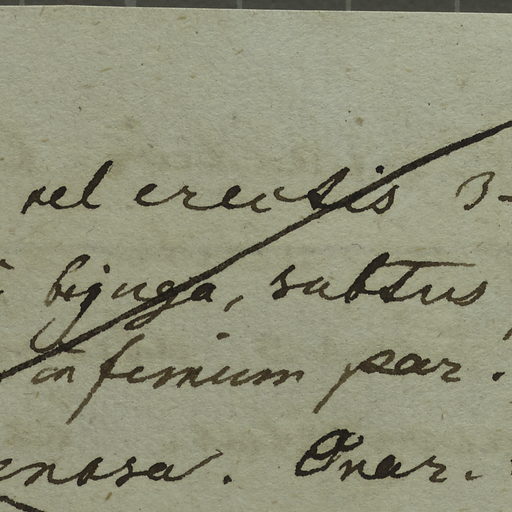 vel erectis 3-
bijuga, subtus
infimum par.
enosa. Ovar.